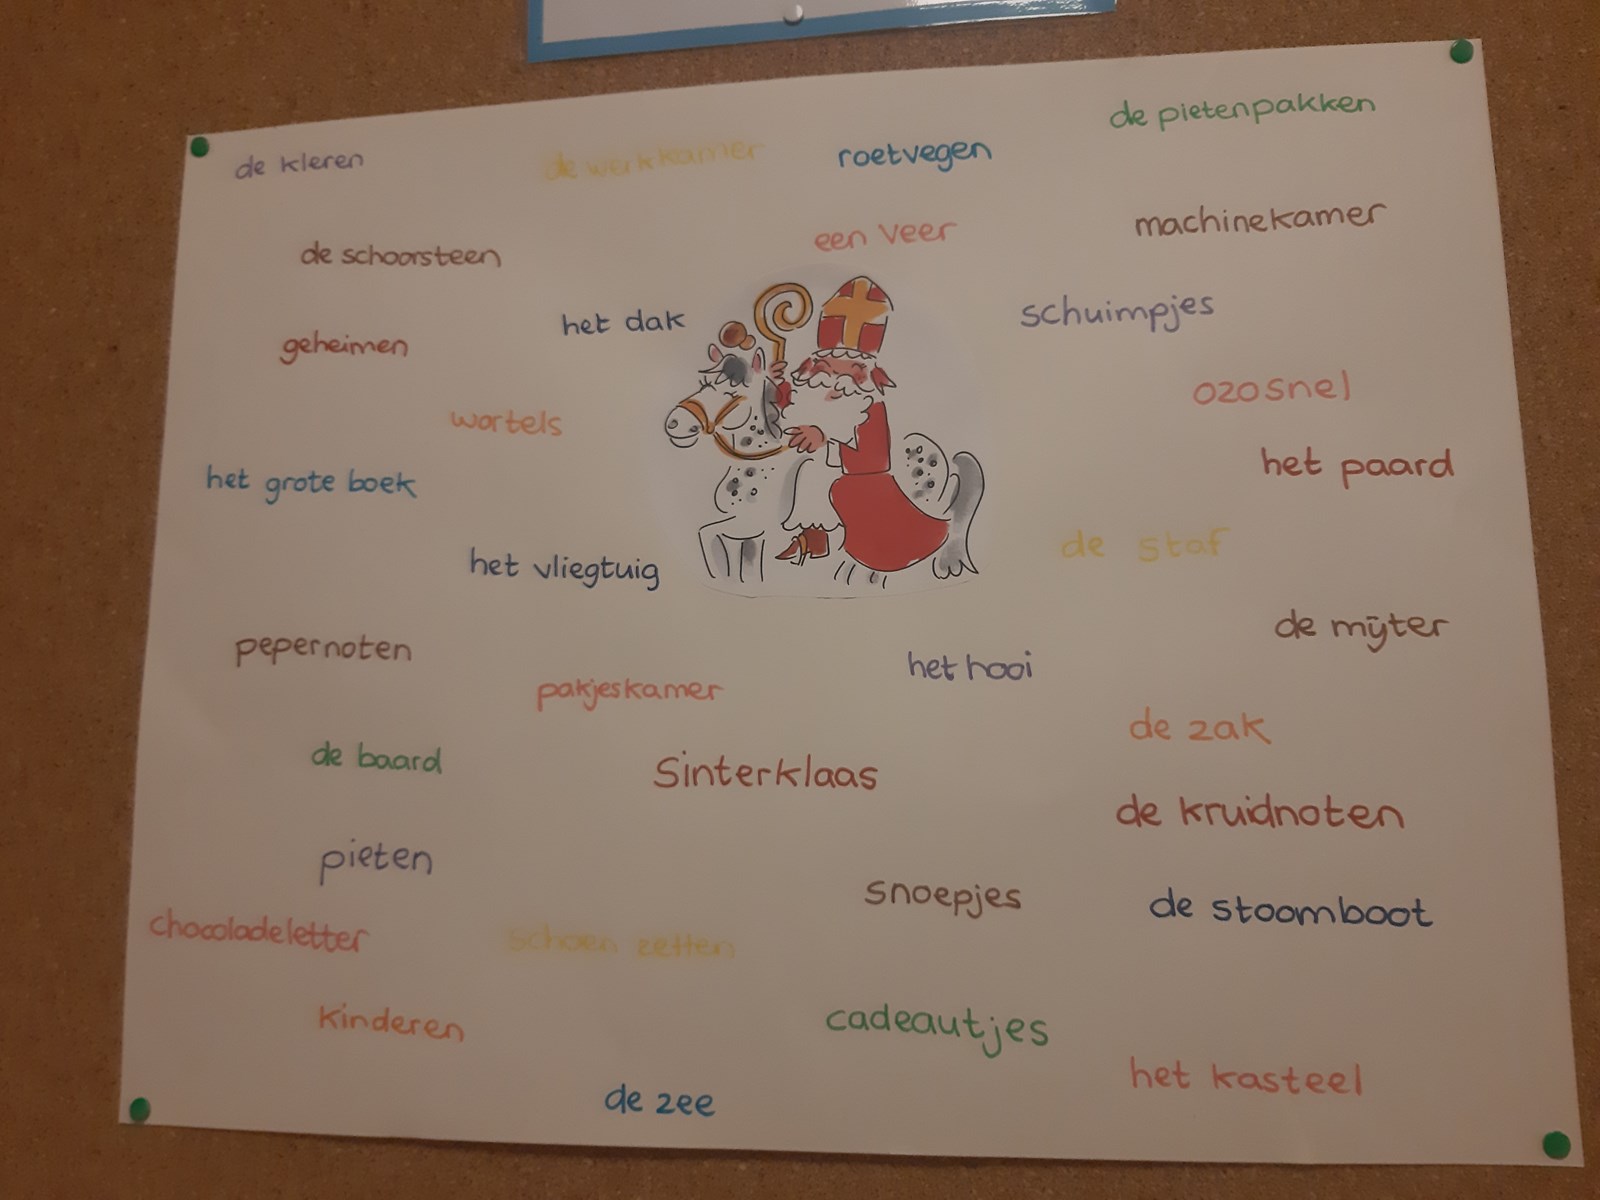 de pietenpakken
de kleren
de werkkamer
roetvegen
een veer
machinekamer
de schoorsteen
het dak
schuimpjes
geheimen
ozosnel
wortels
het paard
het grote boek
de staf
het vliegtuig
de mijter
pepernoten
het hooi
pakjeskamer
de zak
de baard
Sinterklaas
de kruidnoten
pieten
snoepjes
de stoomboot
chocoladeletter
schoen zetten
kinderen
cadeautjes
het kasteel
de zee